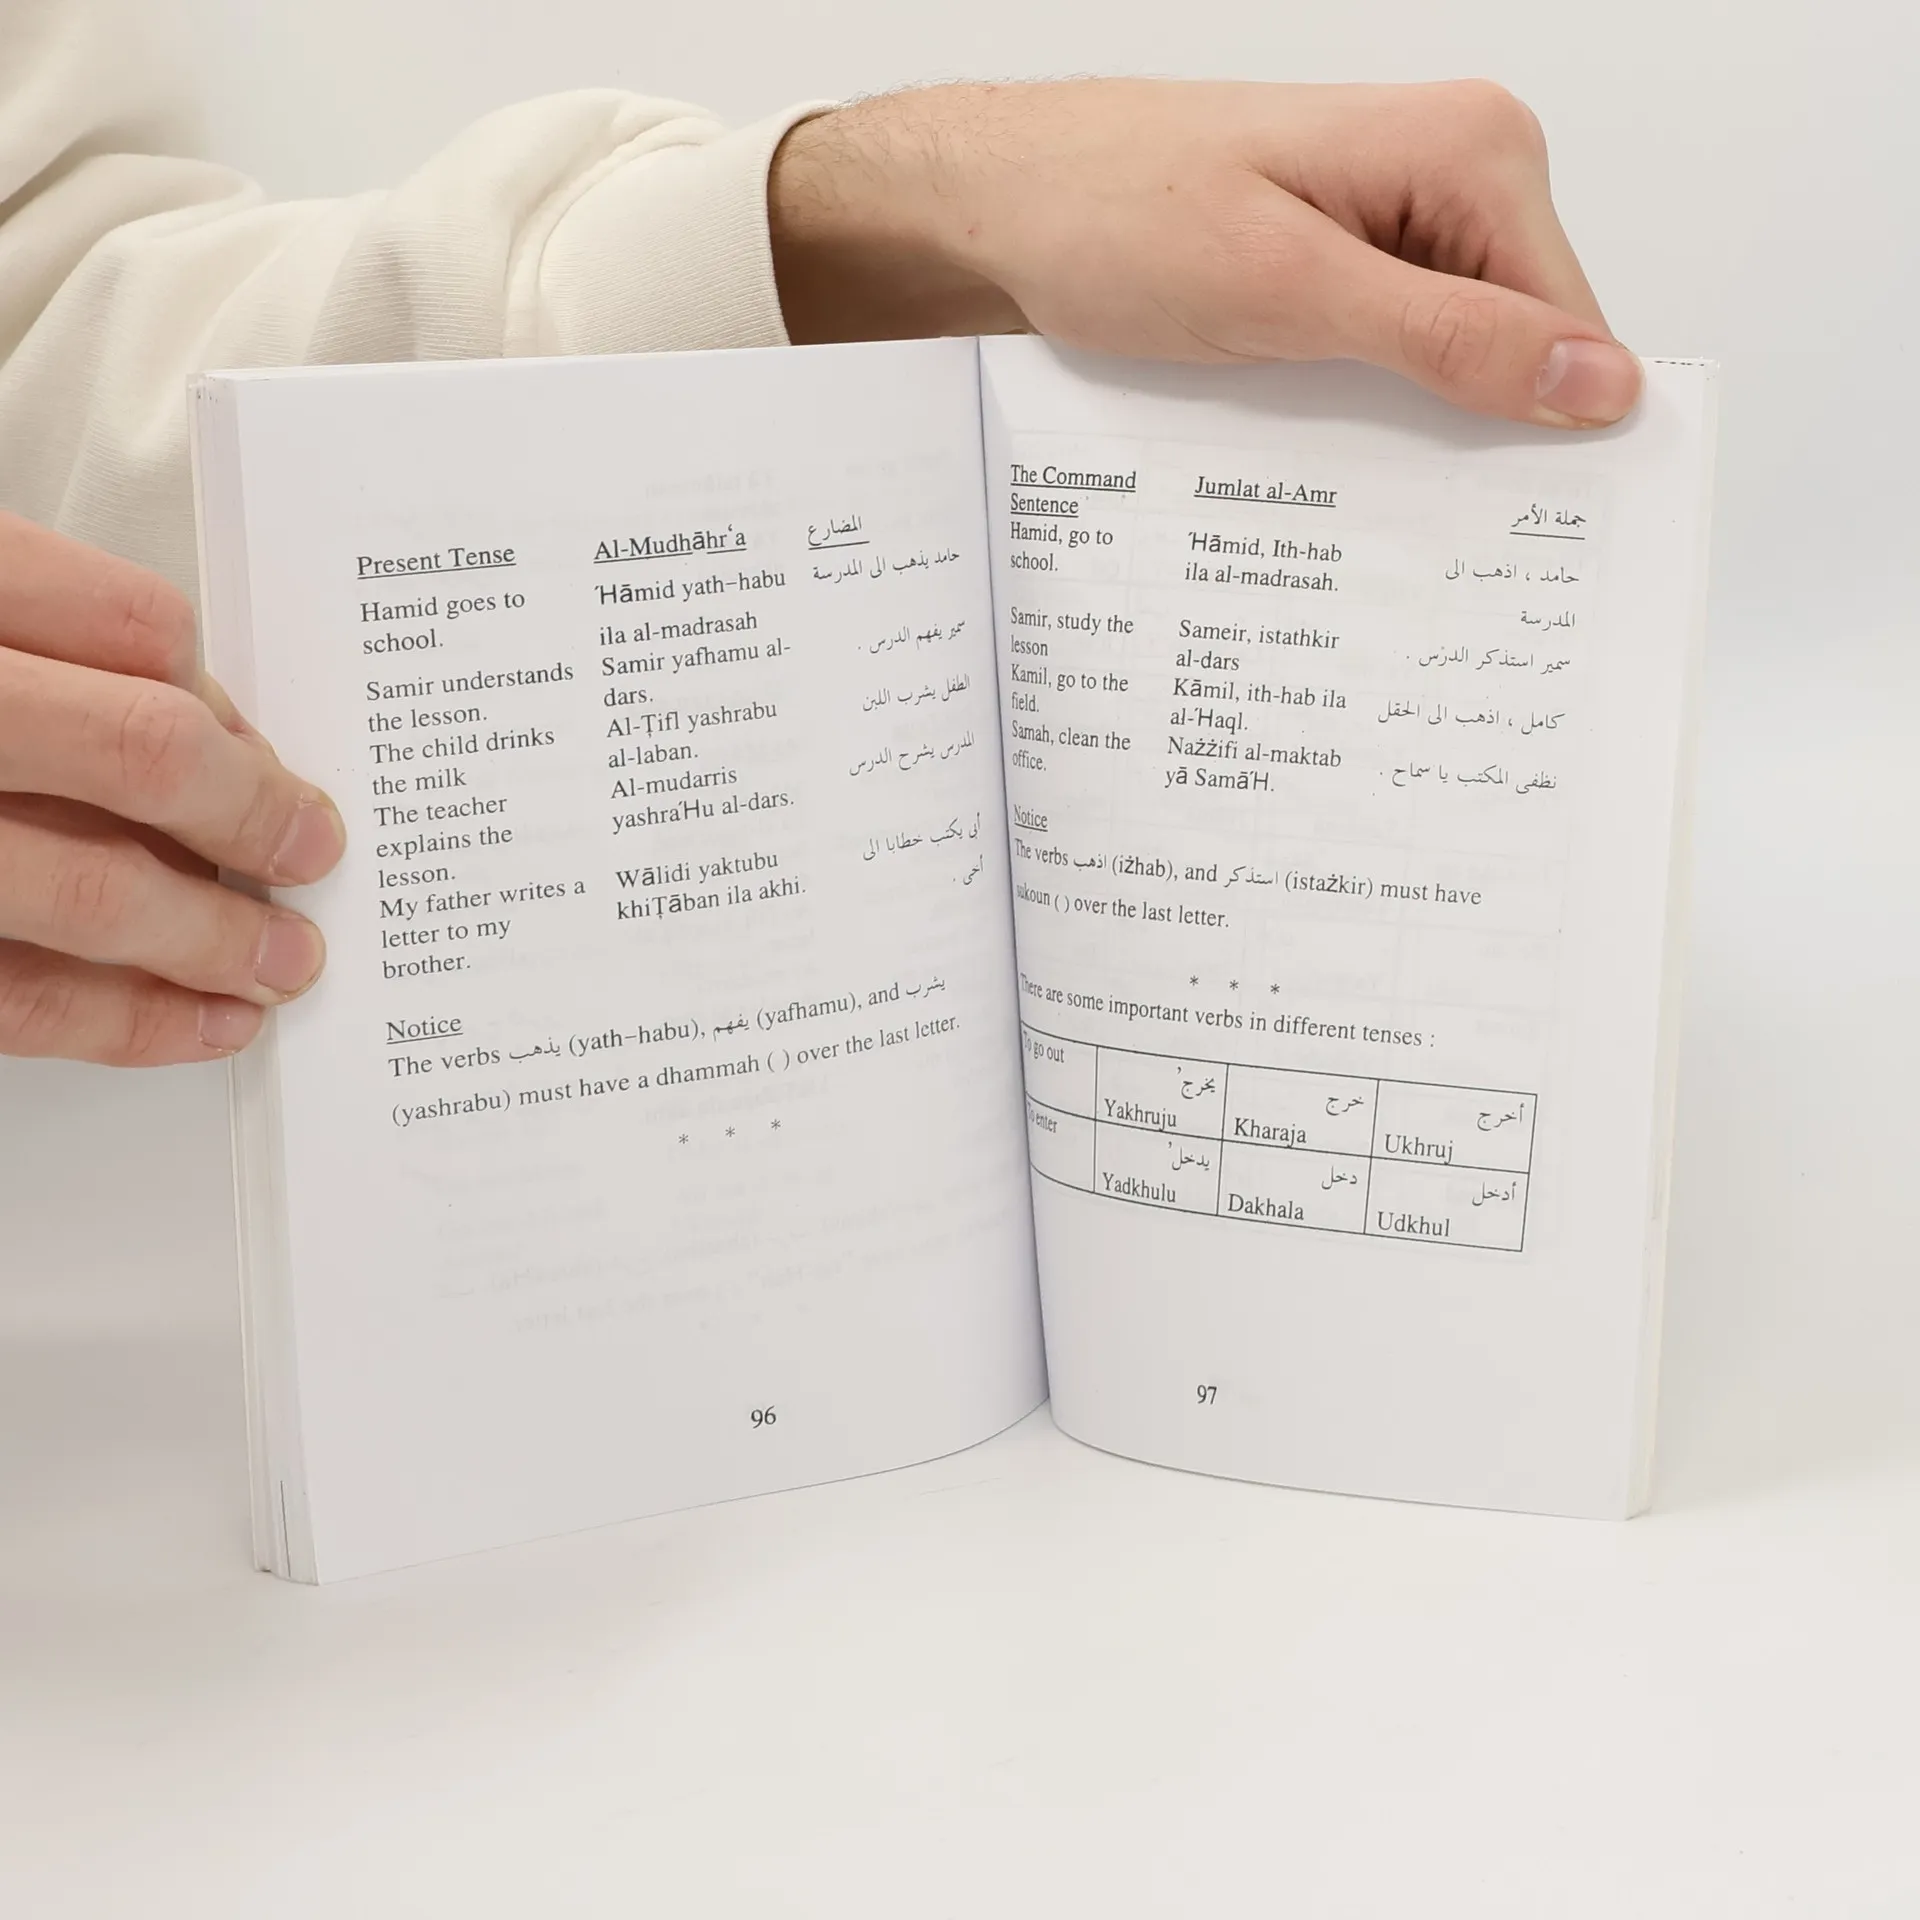 Present Tense Al-Mudhāhr‘a المضارع
Hamid goes to school. ’Hāmid yath–habu ila al-madrasah حامد يذهب الى المدرسة
Samir understands the lesson. Samir yafhamu al-dars. سمير يفهم الدرس .
The child drinks the milk Al-Ṭifl yashrabu al-laban. الطفل يشرب اللبن
The teacher explains the lesson. Al-mudarris yashra’Hu al-dars. المدرس يشرح الدرس
My father writes a letter to my brother. Wālidi yaktubu khiṬāban ila akhi. أبى يكتب خطابا الى أخى .
Notice
The verbs يذهب (yath–habu), يفهم (yafhamu), and يشرب
(yashrabu) must have a dhammah ( ) over the last letter.
* * *
96
The Command Sentence Jumlat al-Amr جملة الأمر
Hamid, go to school. ’Hāmid, Ith-hab ila al-madrasah. حامد ، اذهب الى المدرسة
Samir, study the lesson Sameir, istathkir al-dars سمير استذكر الدرْس .
Kamil, go to the field. Kāmil, ith-hab ila al-’Haql. كامل ، اذهب الى الحقل
Samah, clean the office. Nażżifi al-maktab yā Samā’H. نظفى المكتب يا سماح .
Notice
The verbs اذهب (iżhab), and استذكر (istażkir) must have
sukoun ( ) over the last letter.
* * *
There are some important verbs in different tenses :
To go out يخرج' خرج أخرج
Yakhruju Kharaja Ukhruj
To enter يدخل' دخل أدخل
Yadkhulu Dakhala Udkhul
97